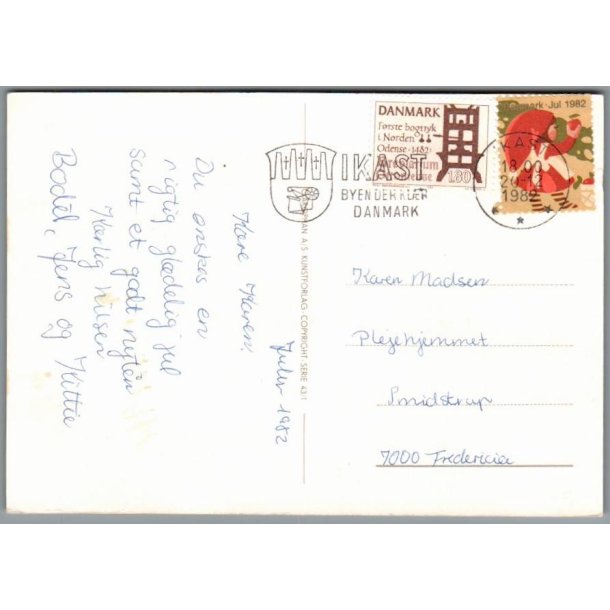 Julen 1982
Kære Karen.
Du ønskes en
rigtig glædelig jul
samt et godt nytår
Kærlig hilsen
Bodil, Jens og Kittie
AN A/S KUNSTFORLAG · COPYRIGHT SERIE 43/1
DANMARK
Første bogtryk
i Norden
Odense · 1482 ·
1.80
Danmark · Jul 1982
IKAST
BYEN DER KLÆR
DANMARK
IKAST
18.00
1982
Karen Madsen
Plejehjemmet
Smidstrup
7000 Fredericia